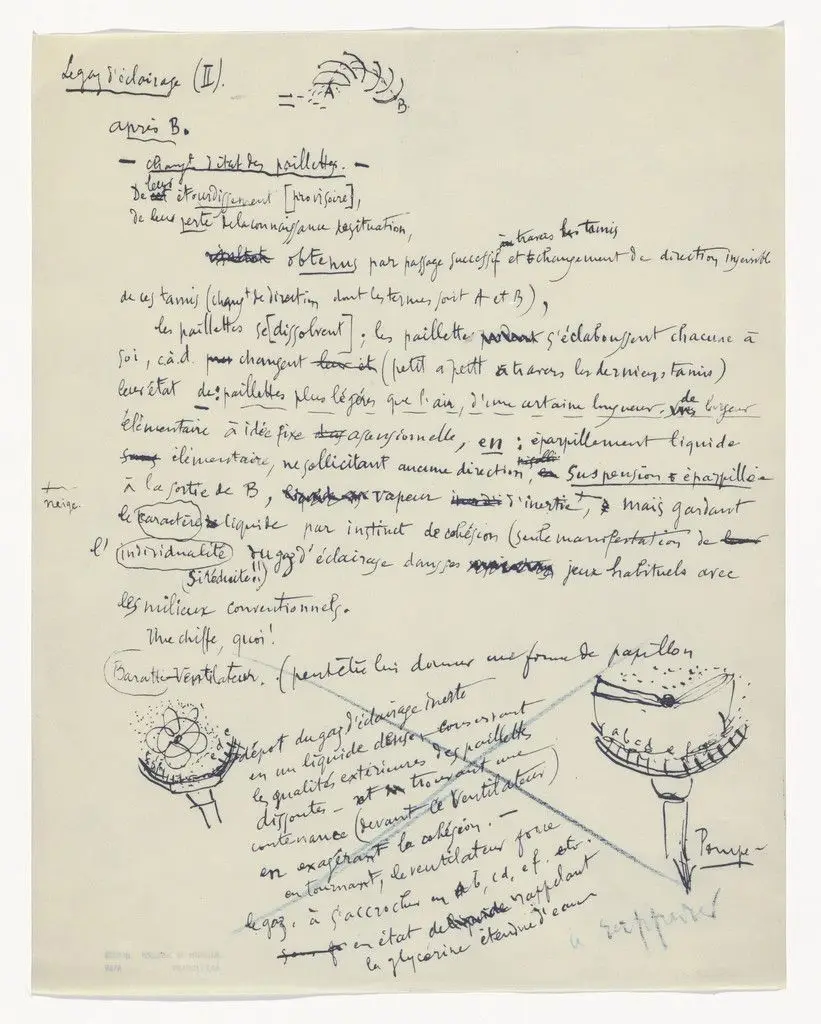 Le gaz d'éclairage (II).
A
B.
après B.
— changt d'état des paillettes. —
De leur étourdissement [provisoire],
de leur perte de la connaissance de situation,
obtenus par passage successif à travers les tamis et changement de direction insensible
de ces tamis (changt de direction dont les termes sont A et B),
les paillettes se [dissolvent] ; les paillettes s'éclaboussent chacune à
soi, c.à.d. changent (petit à petit à travers les derniers tamis)
leur état de : paillettes plus légères que l'air, d'une certaine longueur, de largeur
élémentaire à idée fixe ascensionnelle, en : éparpillement liquide
élémentaire, ne sollicitant aucune direction, suspension éparpillée
à la sortie de B, vapeur d'inertie, mais gardant
neige.
le caractère liquide par instinct de cohésion (seule manifestation de
l'individualité du gaz d'éclairage dans ses jeux habituels avec
(si réduite!!)
les milieux conventionnels.
Une chiffe, quoi!
Baratte Ventilateur. (peut être lui donner une forme de papillon
dépôt du gaz d'éclairage inerte
en un liquide dense conservant
les qualités extérieures des paillettes
dissoutes — et trouvant une
contenance (devant ce ventilateur)
en exagérant la cohésion. —
en tournant, le ventilateur force
le gaz à s'accrocher en ab, cd, ef. etc.
en état de liquide rappelant
la glycérine étendue d'eau
a b c d e f
Pompe —